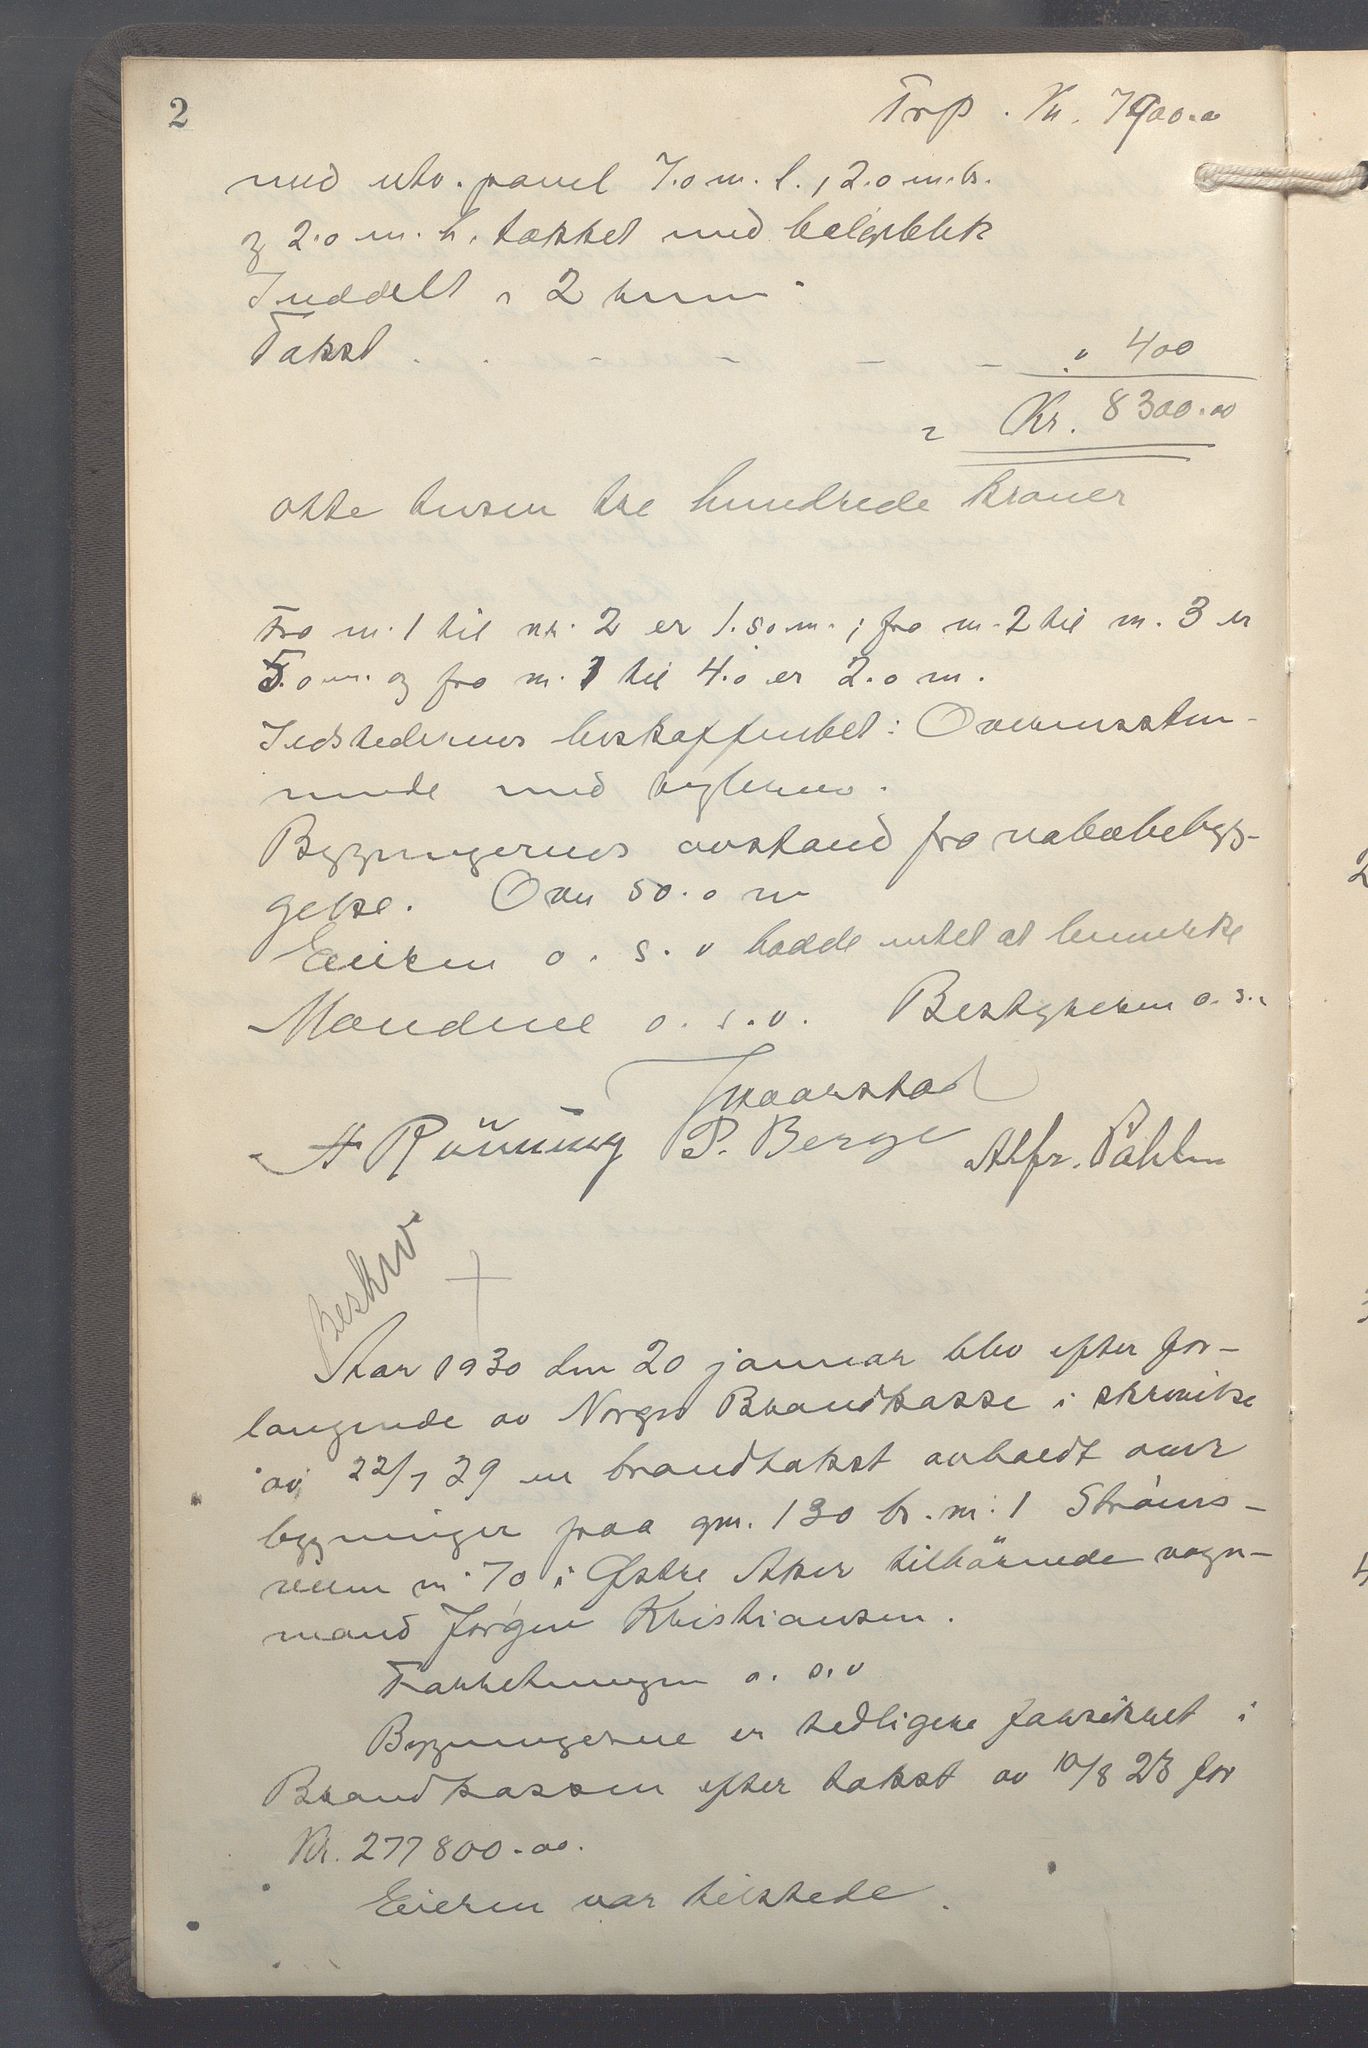 2
Trp. Kr. 7900.00
med utv. panel 7.0 m. l., 2.0 m. br.
og 2.0 m. h. tækket med bølgeblik
Inddelt i 2 rum.
Takst . . - - - - " 400
= Kr. 8300.00
otte tusen tre hundrede kroner
Fra nr. 1 til nr. 2 er 1.50 m.; fra nr. 2 til nr. 3 er
5.0 m. og fra nr. 1 til 4.0 er 2.0 m.
Ildstedernes beskaffenhet: Overensstem-
mende med reglerne.
Bygningernes avstand fra nabobebyg-
gelse. Over 50.0 m
Eieren o. s. v hadde intet at bemerke
Mændene o. s. v. Bestyreren o. s. v
P. Berge
A Rönning
Alfr. Påhlm
Beskrev
Aar 1930 den 20 januar blev efter for-
langende av Norges Brandkasse i skrivelse
av 22/7 29 en brandtakst avholdt over
bygninger paa gnr. 130 br. nr. 1 Strøms-
veien nr. 70 i Østre Aker tilhörende vogn-
mand Jørgen Kristiansen.
Forretningen o. s. v
Bygningerne er tidligere forsikret i
Brandkassen efter takst av 10/8 28 for
Kr. 277800.00.
Eieren var tilstede.